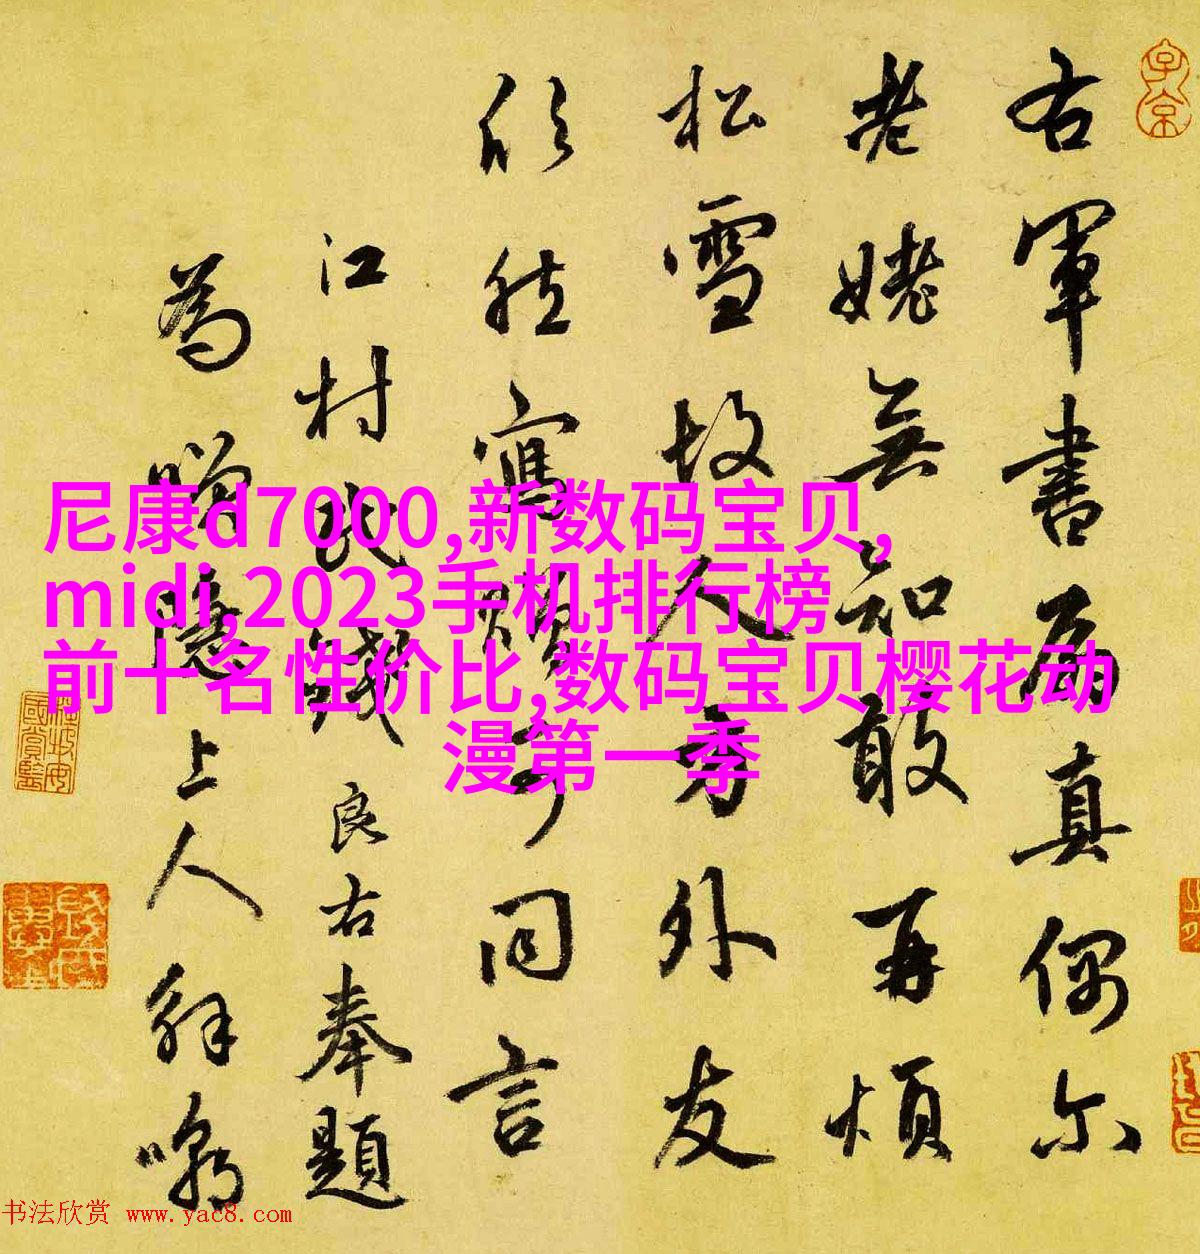 右軍書扇真偶尔
老姥無知敢再煩
松雪故人方外友
欣然寫
同言
江村民
良右奉題
為
隱上人
尼康d7000,新数码宝贝,
midi,2023手机排行榜
前十名性价比,数码宝贝樱花动
漫第一季
书法欣赏 www.yac8.com